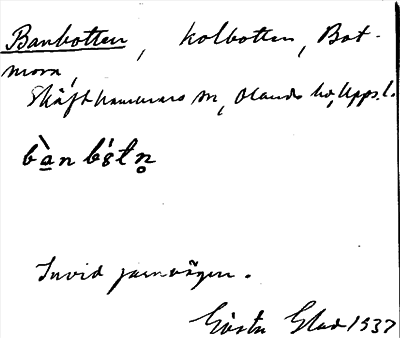 Banbotten, kolbotten, Bot-
mora,
Skäfthammars sn, Olands hd, Upps. l.
bàn bótn̥
Invid järnvägen.
Gösta Glad 1937